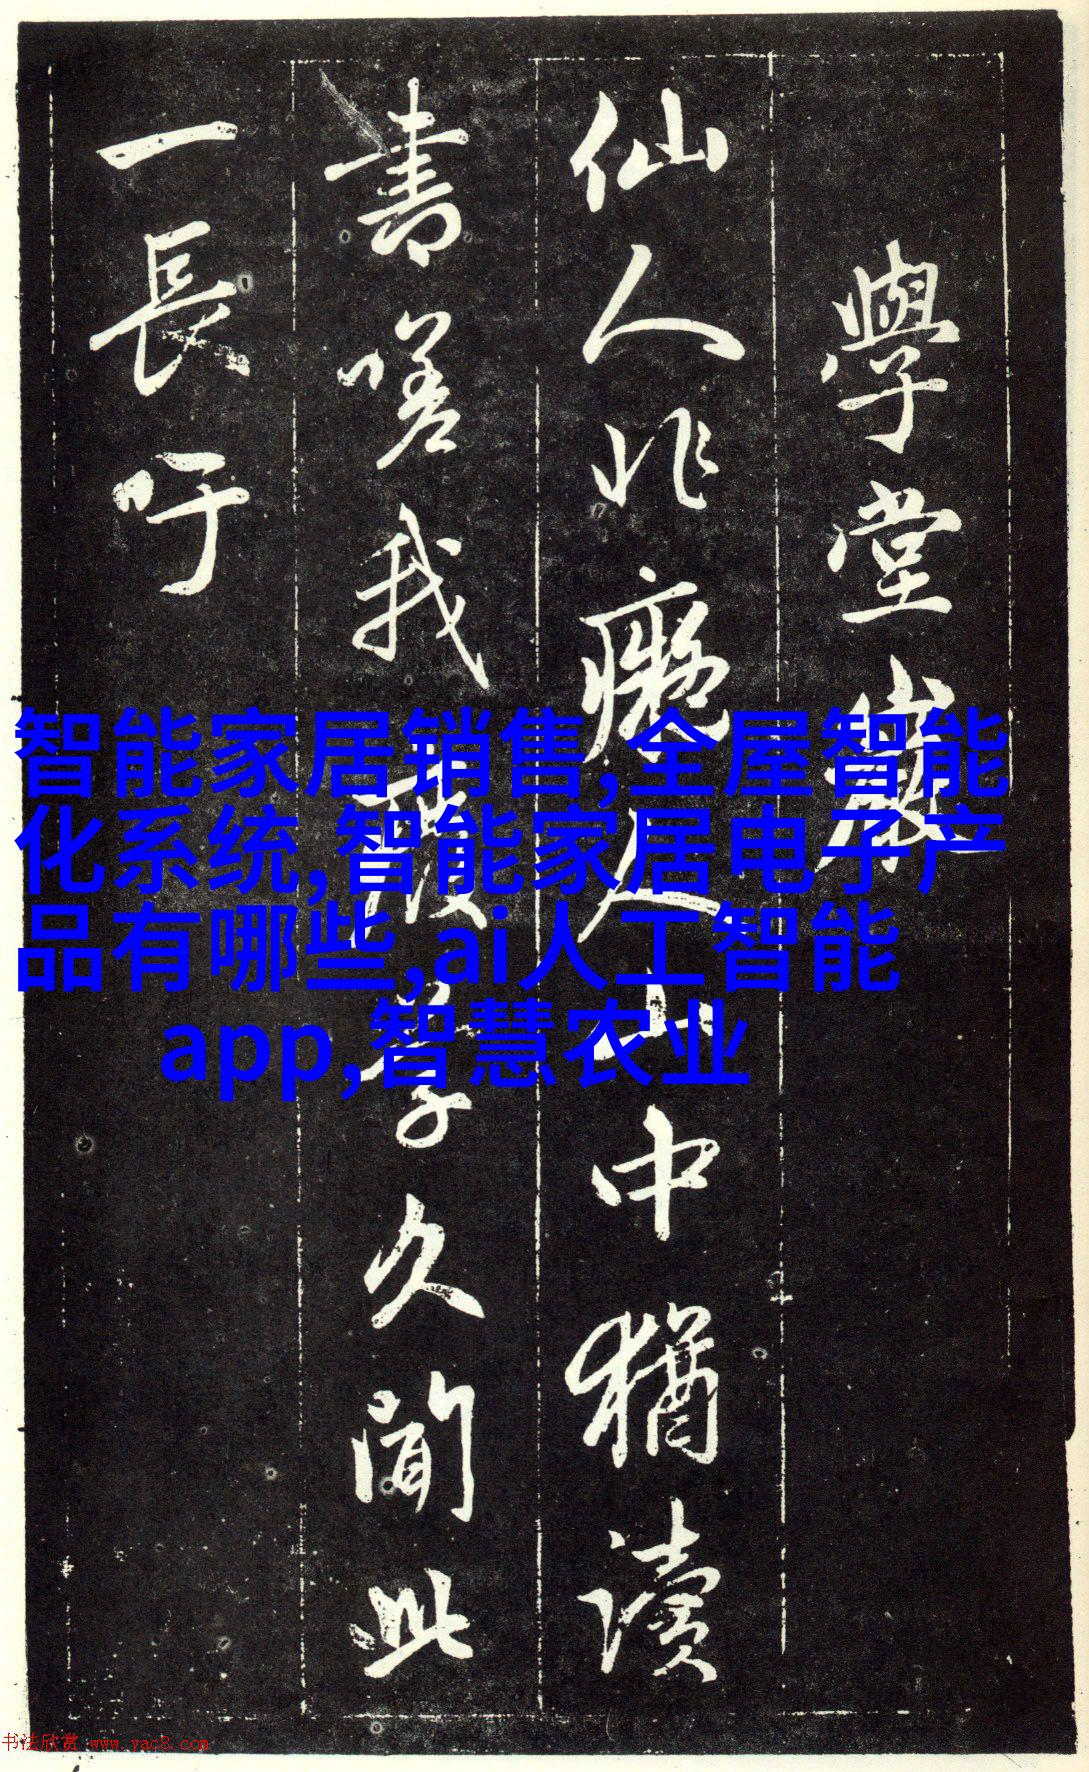 學堂巖
仙人非癡人山中猶讀
書嗟我學久聞此
一長吁
智能家居销售,全屋智能
化系统,智能家居电子产
品有哪些,ai人工智能
app,智慧农业
书法欣赏 www.yac8.com